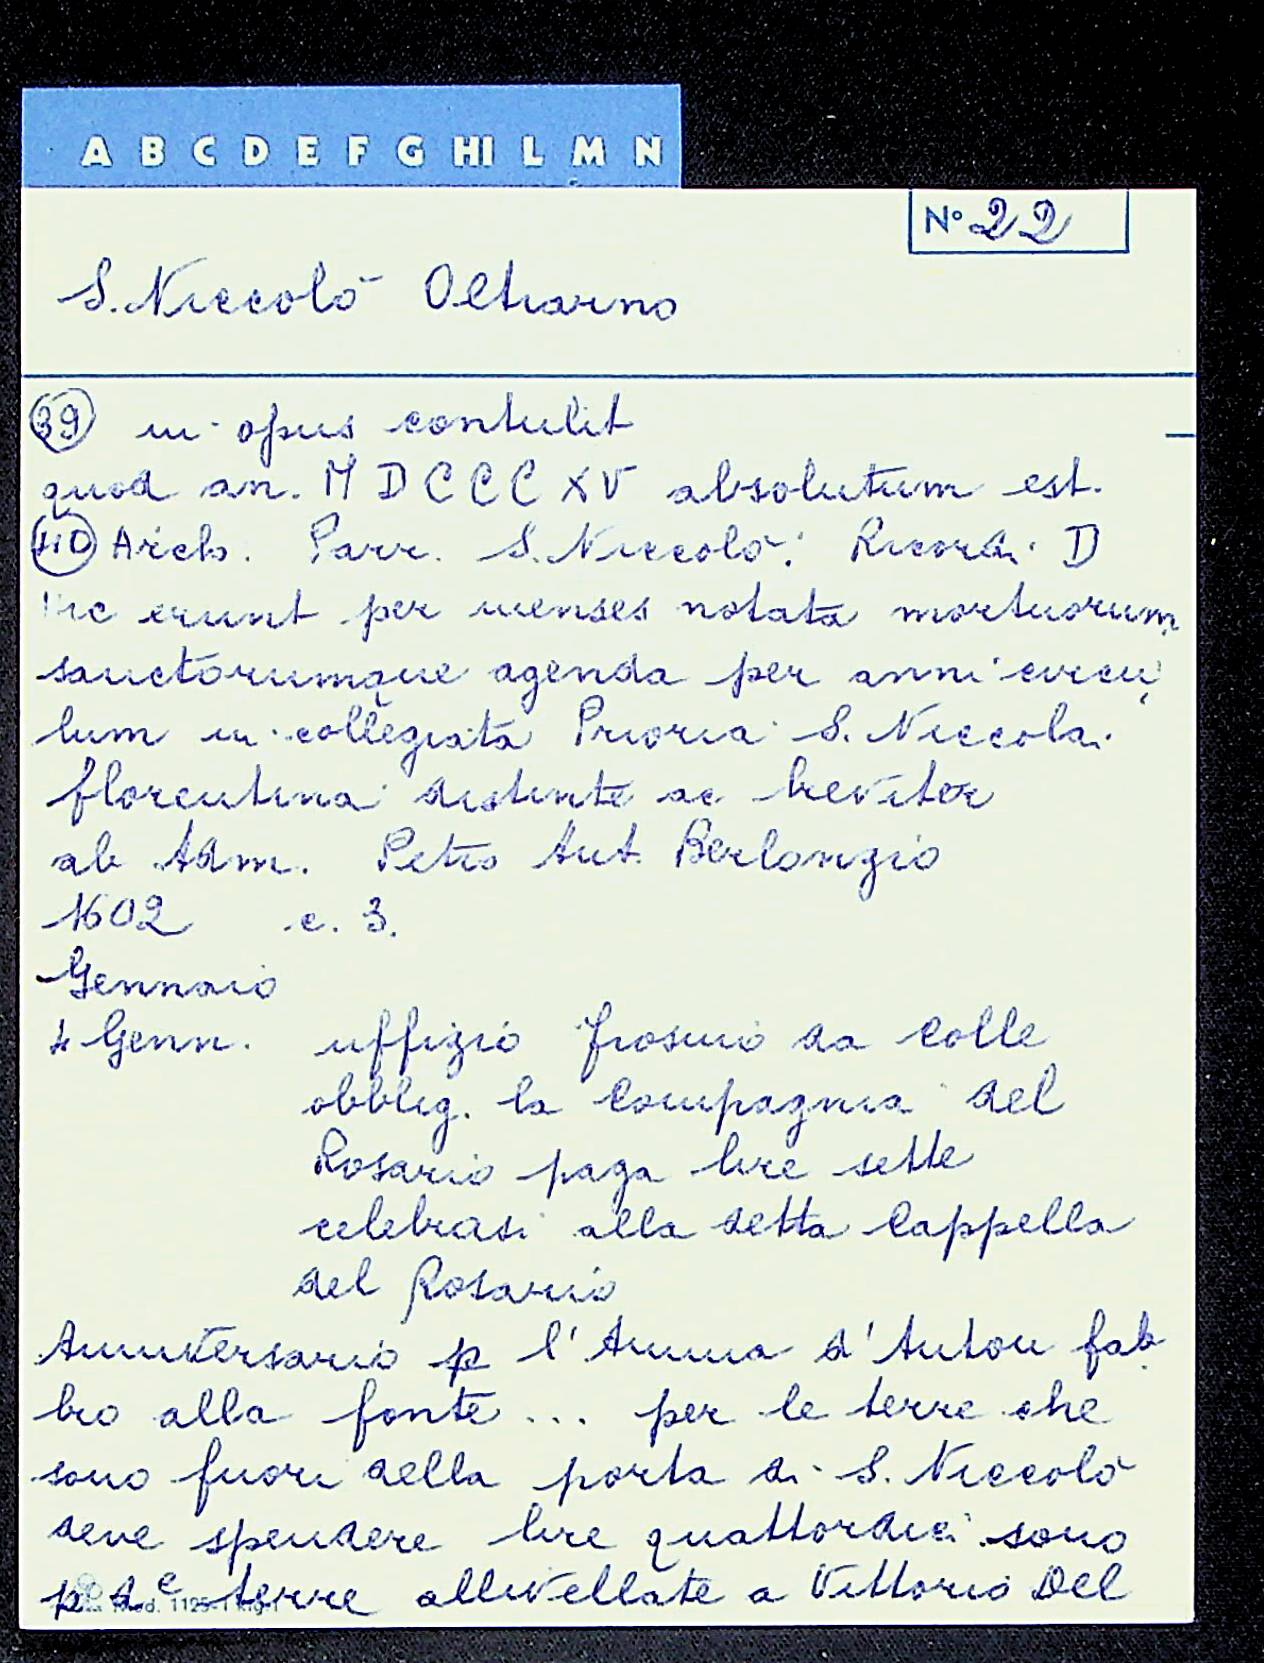 A B C D E F G HI L M N
Nº 22
S. Niccolò Oltrarno
(39) in opus contulit
quod an. MDCCCXV absolutum est.
(40) Arch. Parr. S. Niccolò: Ricordi D
Hic erunt per menses notata mortuorum
sanctorumque agenda per anni circu
lum in collegiata Prioria S. Niccolai
florentina distinte ac breviter
ab Adm. Petro Ant. Berlongio
1602 c. 3.
Gennaio
4 Genn. uffizio Frosino da Colle
obblig. la Compagnia del
Rosario paga lire sette
celebrasi alla detta Cappella
del Rosario
Anniversario p l'Anima d'Anton fab
bro alla fonte ... per le terre che
sono fuori della porta di S. Niccolò
deve spendere lire quattordici sono
p. de terre allivellate a Vittorio Del